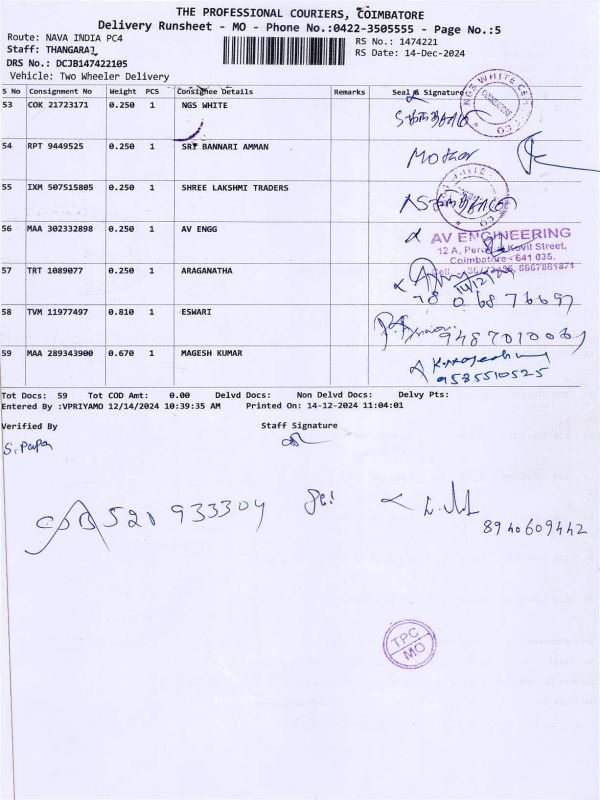 THE PROFESSIONAL COURIERS, COIMBATORE
Delivery Runsheet - MO - Phone No.:0422-3505555 - Page No.:5
Route: NAVA INDIA PC4
RS No.: 1474221
Staff: THANGARAJ
RS Date: 14-Dec-2024
DRS No.: DCJB147422105
Vehicle: Two Wheeler Delivery
S No Consignment No Weight PCS Consignee Details Remarks Seal & Signature
53 COK 21723171 0.250 1 NGS WHITE
54 RPT 9449525 0.250 1 SRI BANNARI AMMAN
55 IXM 507515805 0.250 1 SHREE LAKSHMI TRADERS
56 MAA 302332898 0.250 1 AV ENGG
AV ENGINEERING
Coimbatore - 641 035.
57 TRT 1089077 0.250 1 ARAGANATHA
58 TVM 11977497 0.810 1 ESWARI
59 MAA 289343900 0.670 1 MAGESH KUMAR
9585510525
Tot Docs: 59 Tot COD Amt: 0.00 Delvd Docs: Non Delvd Docs: Delvy Pts:
Entered By :VPRIYAMO 12/14/2024 10:39:35 AM Printed On: 14-12-2024 11:04:01
Verified By Staff Signature
S. Papa
520 933304
8940609442
TPC
MO